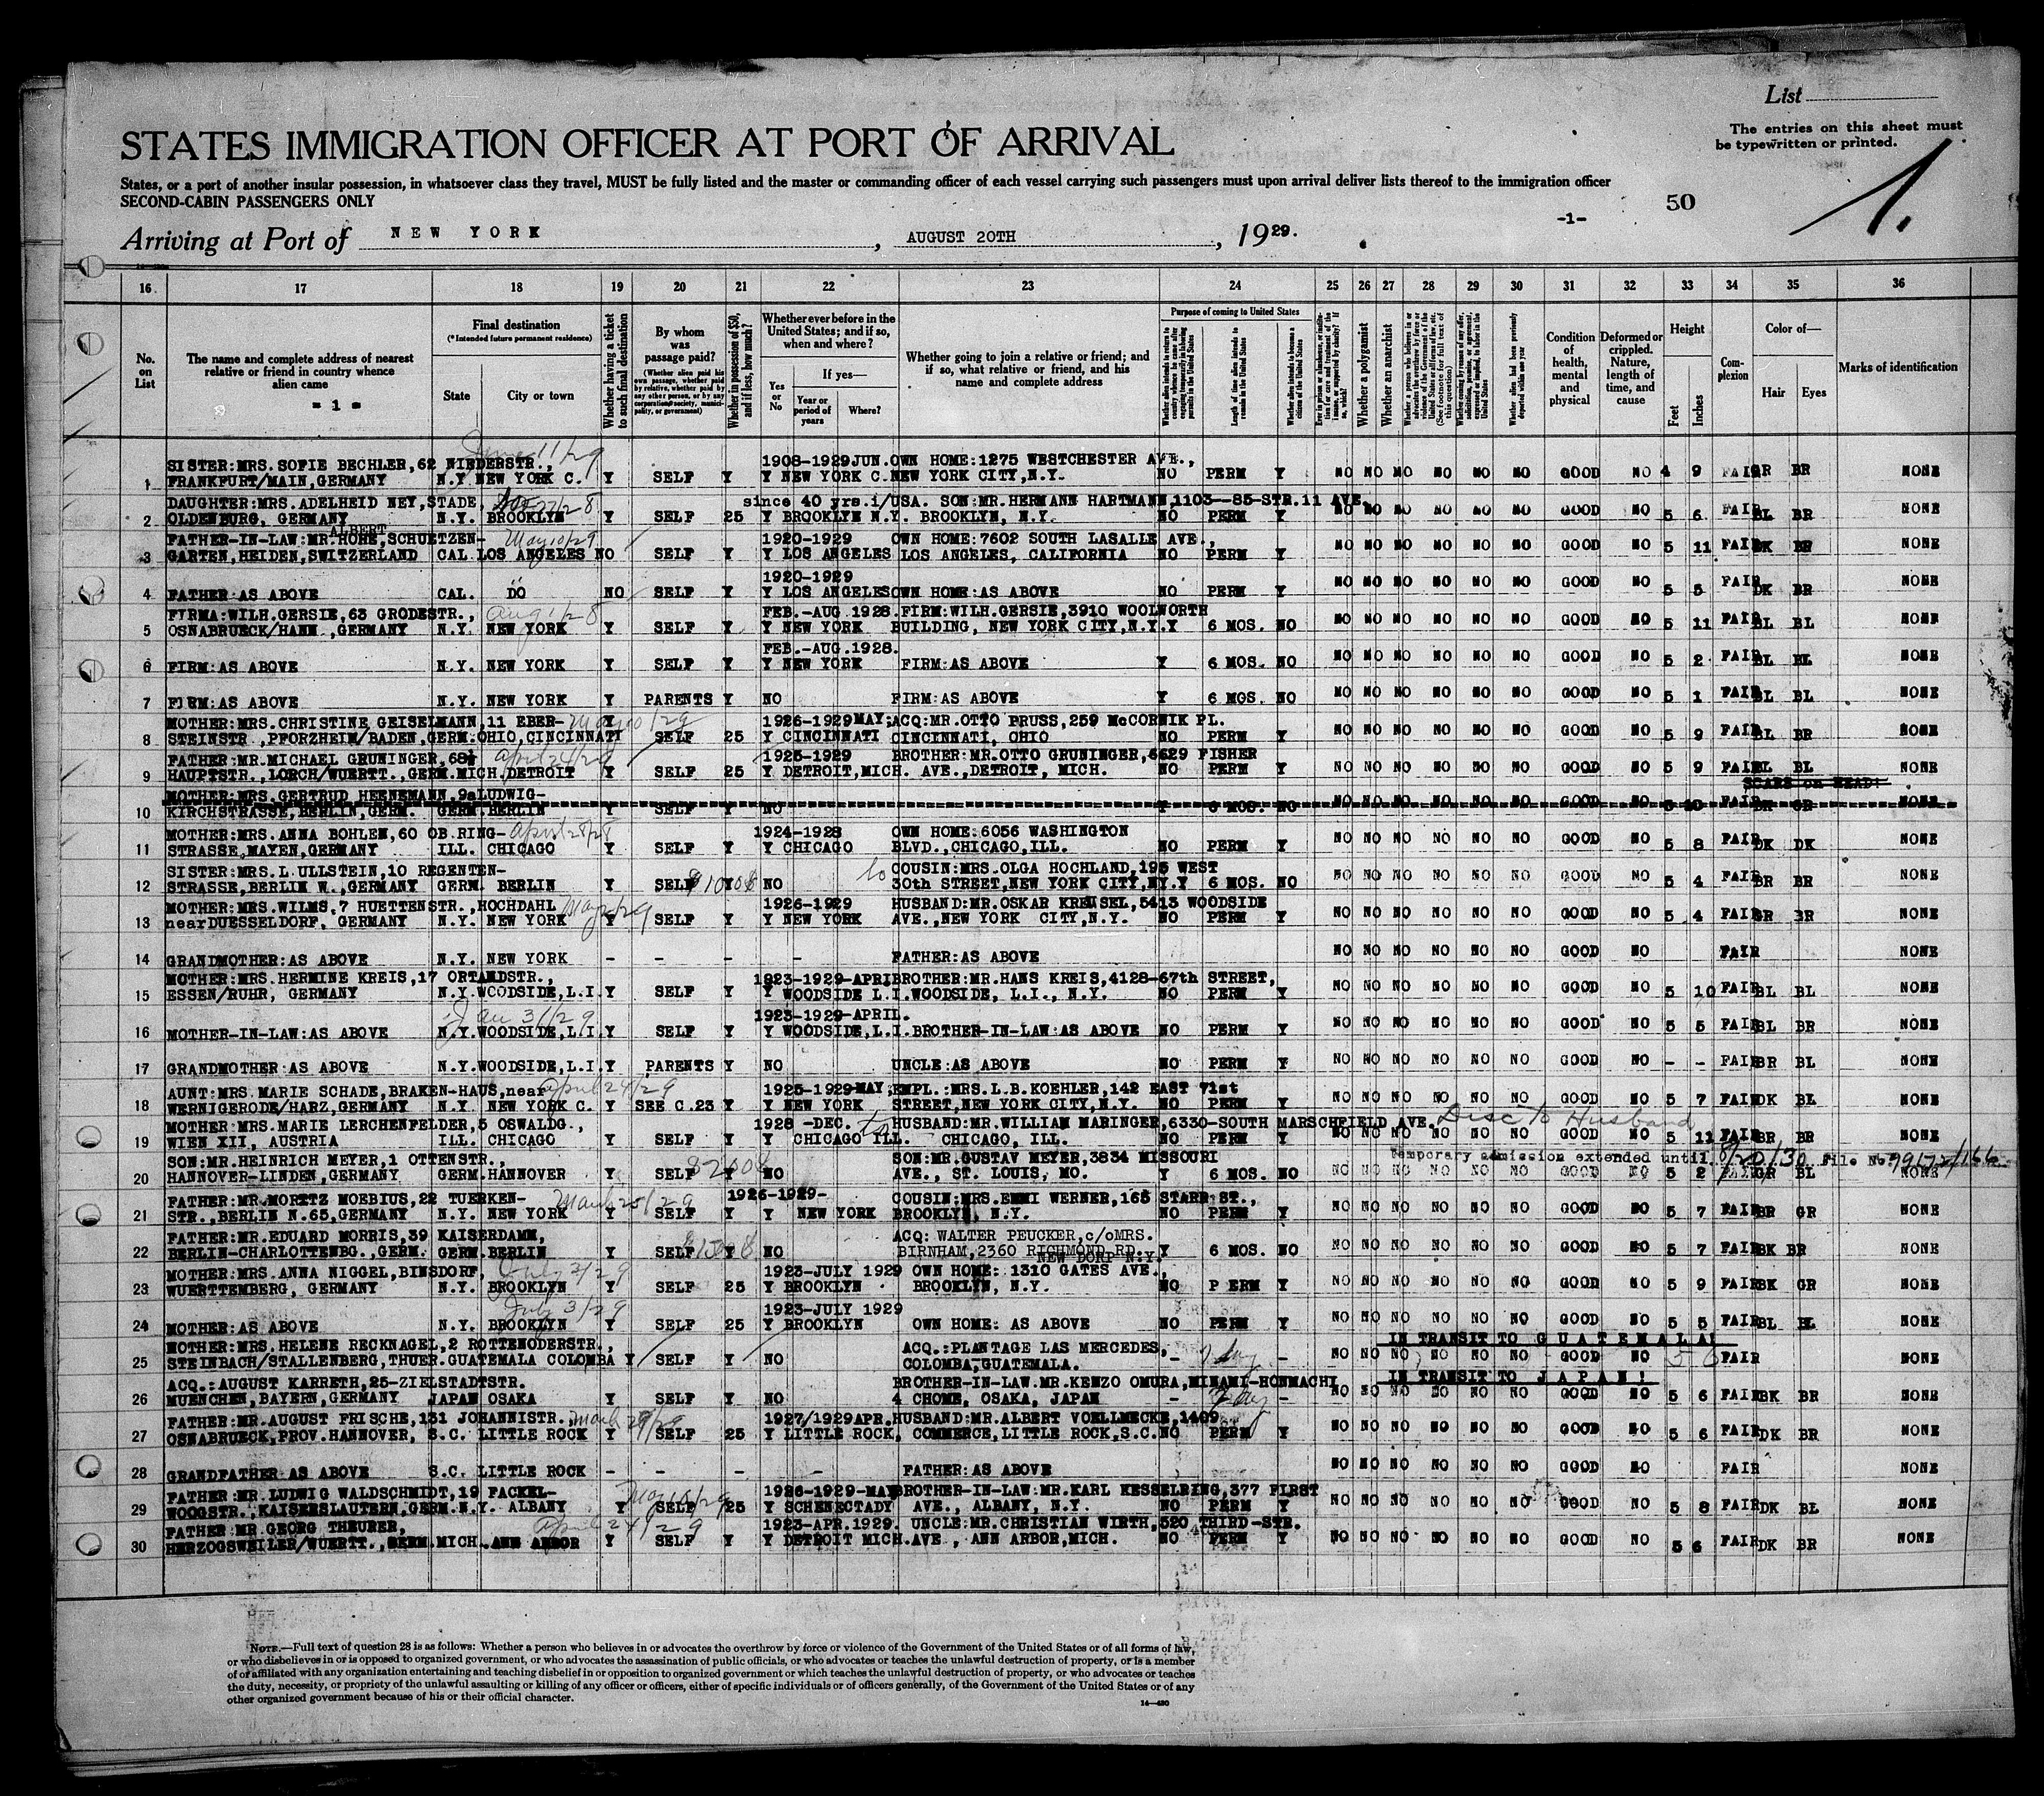 List
The entries on this sheet must
be typewritten or printed.
STATES IMMIGRATION OFFICER AT PORT OF ARRIVAL
1.
States, or a port of another insular possession, in whatsoever class they travel, MUST be fully listed and the master or commanding officer of each vessel carrying such passengers must upon arrival deliver lists thereof to the immigration officer
SECOND-CABIN PASSENGERS ONLY
50
-1-
Arriving at Port of NEW YORK, AUGUST 20TH, 1929.
16 17 18 19 20 21 22 23 24 25 26 27 28 29 30 31 32 33 34 35 36
No. on List
The name and complete address of nearest relative or friend in country whence alien came
- 1 -
Final destination
(*Intended future permanent residence)
State City or town
Whether having a ticket to such final destination
By whom was passage paid?
(Whether alien paid his own passage, whether paid by relative, whether paid by any other person, or by any corporation, society, municipality, or government)
Whether in possession of $50, and if less, how much?
Whether ever before in the United States; and if so, when and where?
Yes or No
If yes—
Year or period of years
Where?
Whether going to join a relative or friend; and if so, what relative or friend, and his name and complete address
Purpose of coming to United States
Length of time alien intends to remain in the United States
Whether alien intends to become a citizen of the United States
Whether a polygamist
Whether an anarchist
Condition of health, mental and physical
Deformed or crippled. Nature, length of time, and cause
Height
Feet Inches
Complexion
Color of—
Hair Eyes
Marks of identification
June 11/29
SISTER:MRS.SOFIE BECHLER,62 NIEDERSTR., 1908-1929JUN.OWN HOME:1275 WESTCHESTER AVE.,
1 FRANKFURT/MAIN,GERMANY N.Y NEW YORK C. Y SELF Y Y NEW YORK C.NEW YORK CITY,N.Y. NO PERM Y NO NO NO NO NO NO GOOD NO 4 9 FAIR GR BR NONE
DAUGHTER:MRS.ADELHEID NEY,STADE, since 40 yrs.i/USA. SON:MR.HERMANN HARTMANN,1103--85-STR.11 AVE.
2 OLDENBURG, GERMANY N.Y. BROOKLYN Y SELF 25 Y BROOKLYN N.Y. BROOKLYN, N.Y. NO PERM Y NO NO NO NO NO NO GOOD NO 5 6 FAIR BL BR NONE
ALBERT
FATHER-IN-LAW:MR.HOHE,SCHUETZEN- May 10/29 1920-1929 OWN HOME:7602 SOUTH LASALLE AVE.,
3 GARTEN,HEIDEN,SWITZERLAND CAL LOS ANGELES NO SELF Y Y LOS ANGELES LOS ANGELES, CALIFORNIA NO PERM Y NO NO NO NO NO NO GOOD NO 5 11 FAIR DK BR NONE
1920-1929
4 FATHER AS ABOVE CAL. DO NO SELF Y Y LOS ANGELES OWN HOME:AS ABOVE NO PERM Y NO NO NO NO NO NO GOOD NO 5 5 FAIR DK BR NONE
FIRMA:WILH.GERSIE,63 GRODESTR., Aug 1/28 FEB.-AUG.1928.FIRM:WILH.GERSIE,3910 WOOLWORTH
5 OSNABRUECK/HANN.,GERMANY N.Y. NEW YORK Y SELF Y Y NEW YORK BUILDING, NEW YORK CITY,N.Y. Y 6 MOS. NO NO NO NO NO NO NO GOOD NO 5 11 FAIR BL BL NONE
FEB.-AUG.1928.
6 FIRM:AS ABOVE N.Y. NEW YORK Y SELF Y Y NEW YORK FIRM:AS ABOVE Y 6 MOS. NO NO NO NO NO NO NO GOOD NO 5 2 FAIR BL BL NONE
7 FIRM:AS ABOVE N.Y. NEW YORK Y PARENTS Y NO FIRM:AS ABOVE Y 6 MOS. NO NO NO NO NO NO NO GOOD NO 5 1 FAIR BL BL NONE
MOTHER:MRS.CHRISTINE GEISELMANN,11 EBER- May 10/29 1926-1929MAY:ACQ:MR.OTTO PRUSS,259 McCORNIK PL.
8 STEINSTR.,PFORZHEIM/BADEN,GERM.OHIO,CINCINNATI Y SELF 25 Y CINCINNATI CINCINNATI, OHIO NO PERM Y NO NO NO NO NO NO GOOD NO 5 9 FAIR BL BR NONE
FATHER:MR.MICHAEL GRUNINGER,68½ April 24/29 1925-1929 BROTHER:MR.OTTO GRUNINGER,6629 FISHER
9 HAUPTSTR.,LORCH/WUERTT.,GERM.MICH.DETROIT Y SELF 25 Y DETROIT,MICH. AVE.,DETROIT, MICH. NO PERM Y NO NO NO NO NO NO GOOD NO 5 9 FAIR BL BL NONE
SCARS on HEAD!
MOTHER:MRS.GERTRUD HEENEMANN,9aLUDWIG-
10 KIRCHSTRASSE,BERLIN,GERM. GERM.BERLIN Y SELF Y NO Y 6 MOS. NO NO NO NO NO NO NO GOOD NO 5 10 FAIR DK GR NONE
MOTHER:MRS.ANNA BOHLEN,60 OB.RING- April 28/28 1924-1928 OWN HOME:6056 WASHINGTON
11 STRASSE,MAYEN,GERMANY ILL. CHICAGO Y SELF Y Y CHICAGO BLVD.,CHICAGO,ILL. NO PERM Y NO NO NO NO NO NO GOOD NO 5 8 FAIR DK DK NONE
SISTER:MRS.L.ULLSTEIN,10 REGENTEN- to COUSIN:MRS.OLGA HOCHLAND,195 WEST
12 STRASSE,BERLIN W.,GERMANY GERM. BERLIN Y SELF Y NO 30th STREET,NEW YORK CITY,NY.Y 6 MOS. NO NO NO NO NO NO NO GOOD NO 5 4 FAIR BR BR NONE
MOTHER:MRS.WILMS,7 HUETTENSTR.,HOCHDAHL 1926-1929 HUSBAND:MR.OSKAR KREUSEL,5413 WOODSIDE
13 nearDUESSELDORF, GERMANY N.Y. NEW YORK Y SELF Y Y NEW YORK AVE.,NEW YORK CITY,N.Y. NO PERM Y NO NO NO NO NO NO GOOD NO 5 4 FAIR BR BR NONE
14 GRANDMOTHER:AS ABOVE N.Y. NEW YORK - - - - FATHER:AS ABOVE NO NO NO NO NO NO GOOD NO FAIR NONE
MOTHER:MRS.HERMINE KREIS,17 ORTANDSTR., 1923-1929-APRIBROTHER:MR.HANS KREIS,4128-67th STREET,
15 ESSEN/RUHR, GERMANY N.Y.WOODSIDE,L.I.Y SELF Y Y WOODSIDE L.I.WOODSIDE, L.I., N.Y. NO PERM Y NO NO NO NO NO NO GOOD NO 5 10 FAIR BL BL NONE
Jan 31/29 1923-1929-APRIL.
16 MOTHER-IN-LAW:AS ABOVE N.Y.WOODSIDE,L.I.Y SELF Y Y WOODSIDE,L.I.BROTHER-IN-LAW:AS ABOVE NO PERM Y NO NO NO NO NO NO GOOD NO 5 5 FAIR BL BR NONE
17 GRANDMOTHER AS ABOVE N.Y.WOODSIDE,L.I.Y PARENTS Y NO UNCLE:AS ABOVE NO PERM Y NO NO NO NO NO NO GOOD NO - - FAIR BR BL NONE
AUNT:MRS.MARIE SCHADE,BRAKEN-HAUS,near April 24/29 1925-1929-MAY;EMPL.:MRS.L.B.KOEHLER,142 EAST 71st
18 WERNIGERODE/HARZ,GERMANY N.Y. NEW YORK C. Y SEE C.23 Y Y NEW YORK STREET,NEW YORK CITY,N.Y. NO PERM Y NO NO NO NO NO NO GOOD NO 5 7 FAIR DK BL NONE
MOTHER:MRS.MARIE LERCHENFELDER,5 OSWALDG., 1928 -DEC. to HUSBAND:MR.WILLIAM MARINGER,6330-SOUTH MARSCHFIELD AVE. Disc to Husband
19 WIEN XII, AUSTRIA ILL. CHICAGO Y SELF Y Y CHICAGO ILL. CHICAGO, ILL. NO PERM Y NO NO NO NO NO NO GOOD NO 5 11 FAIR BR BR NONE
Temporary admission extended until 8/20/30 File No.
SON:MR.HEINRICH MEYER,1 OTTENSTR., SON:MR.GUSTAV MEYER,3834 MISSOURI
20 HANNOVER-LINDEN, GERMANY GERM.HANNOVER Y SELF Y NO AVE., ST. LOUIS, MO. Y 6 MOS. NO NO NO NO NO NO NO GOOD NO 5 2 FAIR GR BL NONE
FATHER:MR.MORITZ MOEBIUS,22 TUERKEN- March 25/29 1926-1929- COUSIN:MRS.EMMI WERNER,165 STARR ST.,
21 STR.,BERLIN N.65,GERMANY N.Y. NEW YORK Y SELF Y Y NEW YORK BROOKLYN, N.Y. NO PERM Y NO NO NO NO NO NO GOOD NO 5 7 FAIR BR GR NONE
FATHER:MR.EDUARD MORRIS,39 KAISERDAMM, ACQ: WALTER PEUCKER,c/oMRS.
22 BERLIN-CHARLOTTENBG.,GERM. GERM.BERLIN Y SELF Y NO BIRNHAM,2360 RICHMOND RD. Y 6 MOS. NO NO NO NO NO NO NO GOOD NO 5 7 FAIR BK BR NONE
NEW DORP N.Y.
MOTHER:MRS.ANNA NIGGEL,BINSDORF, July 3/29 1923-JULY 1929 OWN HOME: 1310 GATES AVE.,
23 WUERTTEMBERG, GERMANY N.Y. BROOKLYN Y SELF 25 Y BROOKLYN BROOKLYN, N.Y. NO P ERM Y NO NO NO NO NO NO GOOD NO 5 9 FAIR BK GR NONE
July 3/29 1923-JULY 1929
24 MOTHER:AS ABOVE N.Y. BROOKLYN Y SELF 25 Y BROOKLYN OWN HOME: AS ABOVE NO PERM Y NO NO NO NO NO NO GOOD NO 5 5 FAIR BL BL NONE
IN TRANSIT TO GUATEMALA!
MOTHER:MRS.HELENE RECKNAGEL,2 ROTTENODERSTR., ACQ.:PLANTAGE LAS MERCEDES,
25 STEINBACH/STALLENBERG,THUER.GUATEMALA COLOMBA Y SELF Y NO COLOMBA,GUATEMALA. - - NO NO NO NO NO NO GOOD NO FAIR NONE
IN TRANSIT TO JAPAN!
ACQ.:AUGUST KARRETH,25-ZIELSTADTSTR. BROTHER-IN-LAW.MR.KENZO OMURA,MINAMI-HONMACHI
26 MUENCHEN,BAYERN,GERMANY JAPAN OSAKA Y SELF Y NO 4 CHOME, OSAKA, JAPAN - - NO NO NO NO NO NO GOOD NO 5 6 FAIR BK BR NONE
FATHER:MR.AUGUST FRISCHE,131 JOHANNISTR., 1927/1929APR.HUSBAND:MR.ALBERT VOELLMECKE,1409
27 OSNABRUECK,PROV.HANNOVER, S.C. LITTLE ROCK Y SELF 25 Y LITTLE ROCK, COMMERCE,LITTLE ROCK,S.C.NO PERM Y NO NO NO NO NO NO GOOD NO 5 6 FAIR DK BR NONE
28 GRANDFATHER AS ABOVE S.C. LITTLE ROCK - - - - FATHER:AS ABOVE NO NO NO NO NO NO GOOD NO FAIR NONE
FATHER:MR.LUDWIG WALDSCHMIDT,19 FACKEL- 1926-1929-MAYBROTHER-IN-LAW:MR.KARL KESSELRING,377 FIRST
29 WOOGSTR.,KAISERSLAUTERN,GERM.N.Y. ALBANY Y SELF 25 Y SCHENECTADY AVE., ALBANY, N.Y. NO PERM Y NO NO NO NO NO NO GOOD NO 5 8 FAIR DK BL NONE
FATHER:MR.GEORG THEURER, April 24/29 1923-APR.1929. UNCLE:MR.CHRISTIAN WIRTH,520 THIRD-STR.
30 HERZOGSWEILER/WUERTT.,GERM.MICH.ANN ARBOR Y SELF Y Y DETROIT MICH.AVE., ANN ARBOR,MICH. NO PERM Y NO NO NO NO NO NO GOOD NO 5 6 FAIR DK BR NONE
NOTE.—Full text of question 28 is as follows: Whether a person who believes in or advocates the overthrow by force or violence of the Government of the United States or of all forms of law,
or who disbelieves in or is opposed to organized government, or who advocates the assassination of public officials, or who advocates or teaches the unlawful destruction of property, or is a member
of or affiliated with any organization entertaining and teaching disbelief in or opposition to organized government or which teaches the unlawful destruction of property, or who advocates or teaches
the duty, necessity, or propriety of the unlawful assaulting or killing of any officer or officers, either of specific individuals or of officers generally, of the Government of the United States or of any
other organized government because of his or their official character.
14—430